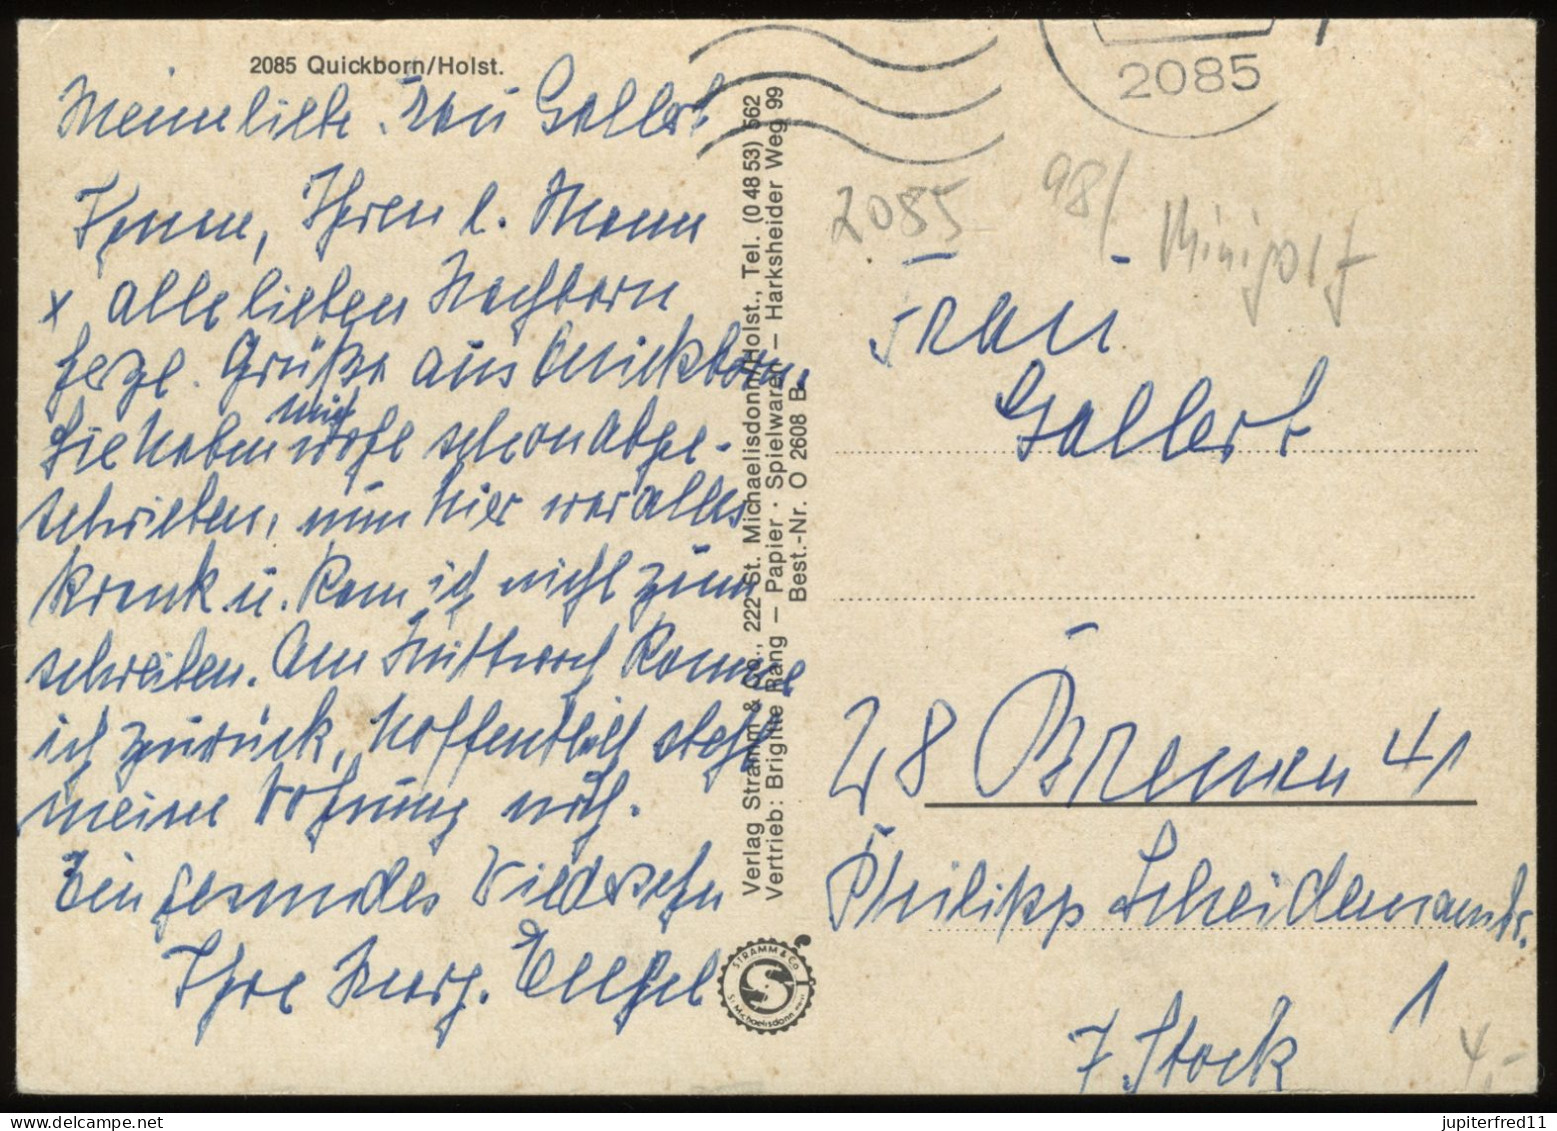 2085 Quickborn/Holst.
Meine liebe Frau Gallert
Ihnen, Ihren l. Mann
x alle lieben Nachbarn
herzl. Grüße aus Quickborn.
Sie haben mich wohl schon abge-
schrieben, nun hier war alles
krank u. kam ich nicht zum
schreiben. Am Mittwoch komme
ich zurück, hoffentlich steht
meine Wohnung noch.
Ein gesundes Wiedersehn
Ihre Marg.
Verlag Stramm & Co., 222 St. Michaelisdonn/Holst., Tel. (0 48 53) 562
Vertrieb: Brigitte Rang – Papier · Spielwaren – Harksheider Weg 99
Best.-Nr. O 2608 B
STRAMM & Co.
St. Michaelisdonn
2085
2085
98/
Minigolf
Frau
Gallert
28 Bremen 41
Philipp Scheidemannstr.
1
7. Stock
4,-
jupiterfred11